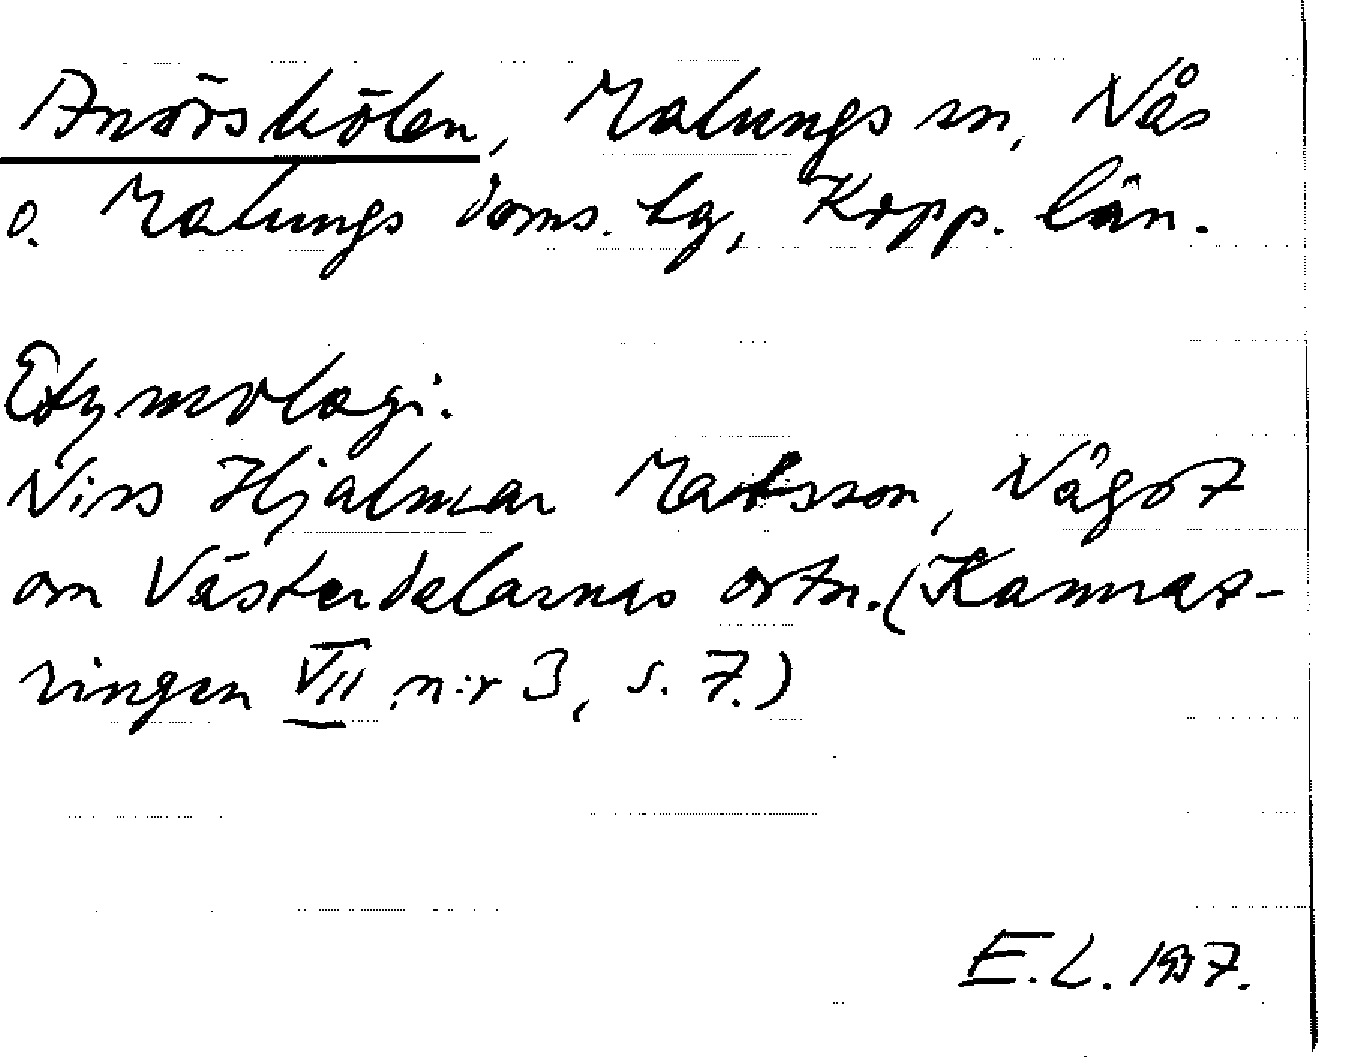 Anörskölen, Malungs sn, Nås
o. Malungs doms. tg, Kopp. län.
Etymologi.
Niss Hjalmar Matsson, Något
om Västerdalarnas ortn. (Kamrat-
ringen VII n:r 3, s. 7.)
E.L.